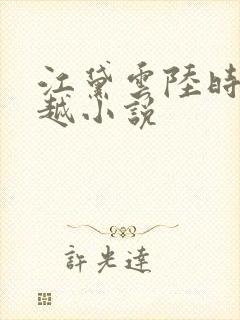 江黛雲陸時
越小說
許光達